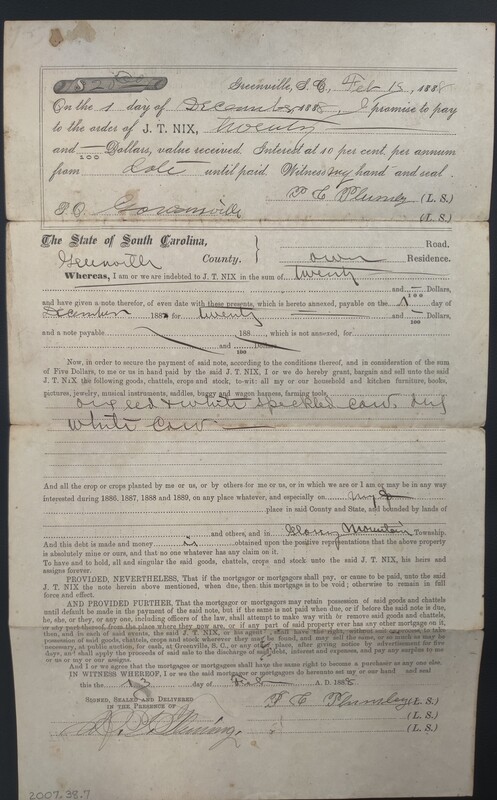 $20 00
Greenville, S. C., Feb 15, 1888
On the 1 day of December 1888, I promise to pay
to the order of J. T. NIX, Twenty
and — /100 Dollars, value received. Interest at 10 per cent. per annum
from date until paid. Witness my hand and seal.
(L. S.)
P. O. Gowensville (L. S.)
The State of South Carolina, Road.
Greenville County. own Residence.
Whereas, I am or we are indebted to J. T. NIX in the sum of twenty
and — /100 Dollars,
and have given a note therefor, of even date with these presents, which is hereto annexed, payable on the 1 day of
December 1888 for twenty and — /100 Dollars,
and a note payable 188 , which is not annexed, for
and /100 Dollars.
Now, in order to secure the payment of said note, according to the conditions thereof, and in consideration of the sum
of Five Dollars, to me or us in hand paid by the said J. T. NIX, I or we do hereby grant, bargain and sell unto the said
J. T. NIX the following goods, chattels, crops and stock, to-wit: all my or our household and kitchen furniture, books,
pictures, jewelry, musical instruments, saddles, buggy and wagon harness, farming tools,
one red & white speckled cow. one
white cow —
And all the crop or crops planted by me or us, or by others for me or us, or in which we are or I am or may be in any way
interested during 1886, 1887, 1888 and 1889, on any place whatever, and especially on my
place in said County and State, and bounded by lands of
and others, and in Glassy Mountain Township.
And this debt is made and money is obtained upon the positive representations that the above property
is absolutely mine or ours, and that no one whatever has any claim on it.
To have and to hold, all and singular the said goods, chattels, crops and stock unto the said J. T. NIX, his heirs and
assigns forever.
PROVIDED, NEVERTHELESS, That if the mortgagor or mortgagors shall pay, or cause to be paid, unto the said
J. T. NIX the note herein above mentioned, when due, then this mortgage is to be void; otherwise to remain in full
force and effect.
AND PROVIDED FURTHER, That the mortgagor or mortgagors may retain possession of said goods and chattels
until default be made in the payment of the said note, but if the same is not paid when due, or if before the said note is due,
he, she, or they, or any one, including officers of the law, shall attempt to make way with or remove said goods and chattels,
or any part thereof, from the place where they now are, or if any part of said property ever has any other mortgage on it,
then, and in each of said events, the said J. T. NIX, or his agent, shall have the right, without suit or process, to take
possession of said goods, chattels, crops and stock wherever they may be found, and may sell the same, or so much as may be
necessary, at public auction, for cash, at Greenville, S. C., or any other place, after giving notice by advertisement for
days, and shall apply the proceeds of said sale to the discharge of said debt, interest and expenses, and pay any surplus to me
or us or my or our assigns.
And I or we agree that the mortgagee or mortgagees shall have the same right to become a purchaser as any one else.
IN WITNESS WHEREOF, I or we the said mortgagor or mortgagors do hereunto set my or our hand and seal
this the 13 day of Feb A. D. 1888
SIGNED, SEALED AND DELIVERED (L. S.)
IN THE PRESENCE OF (L. S.)
(L. S.)
2007.38.7